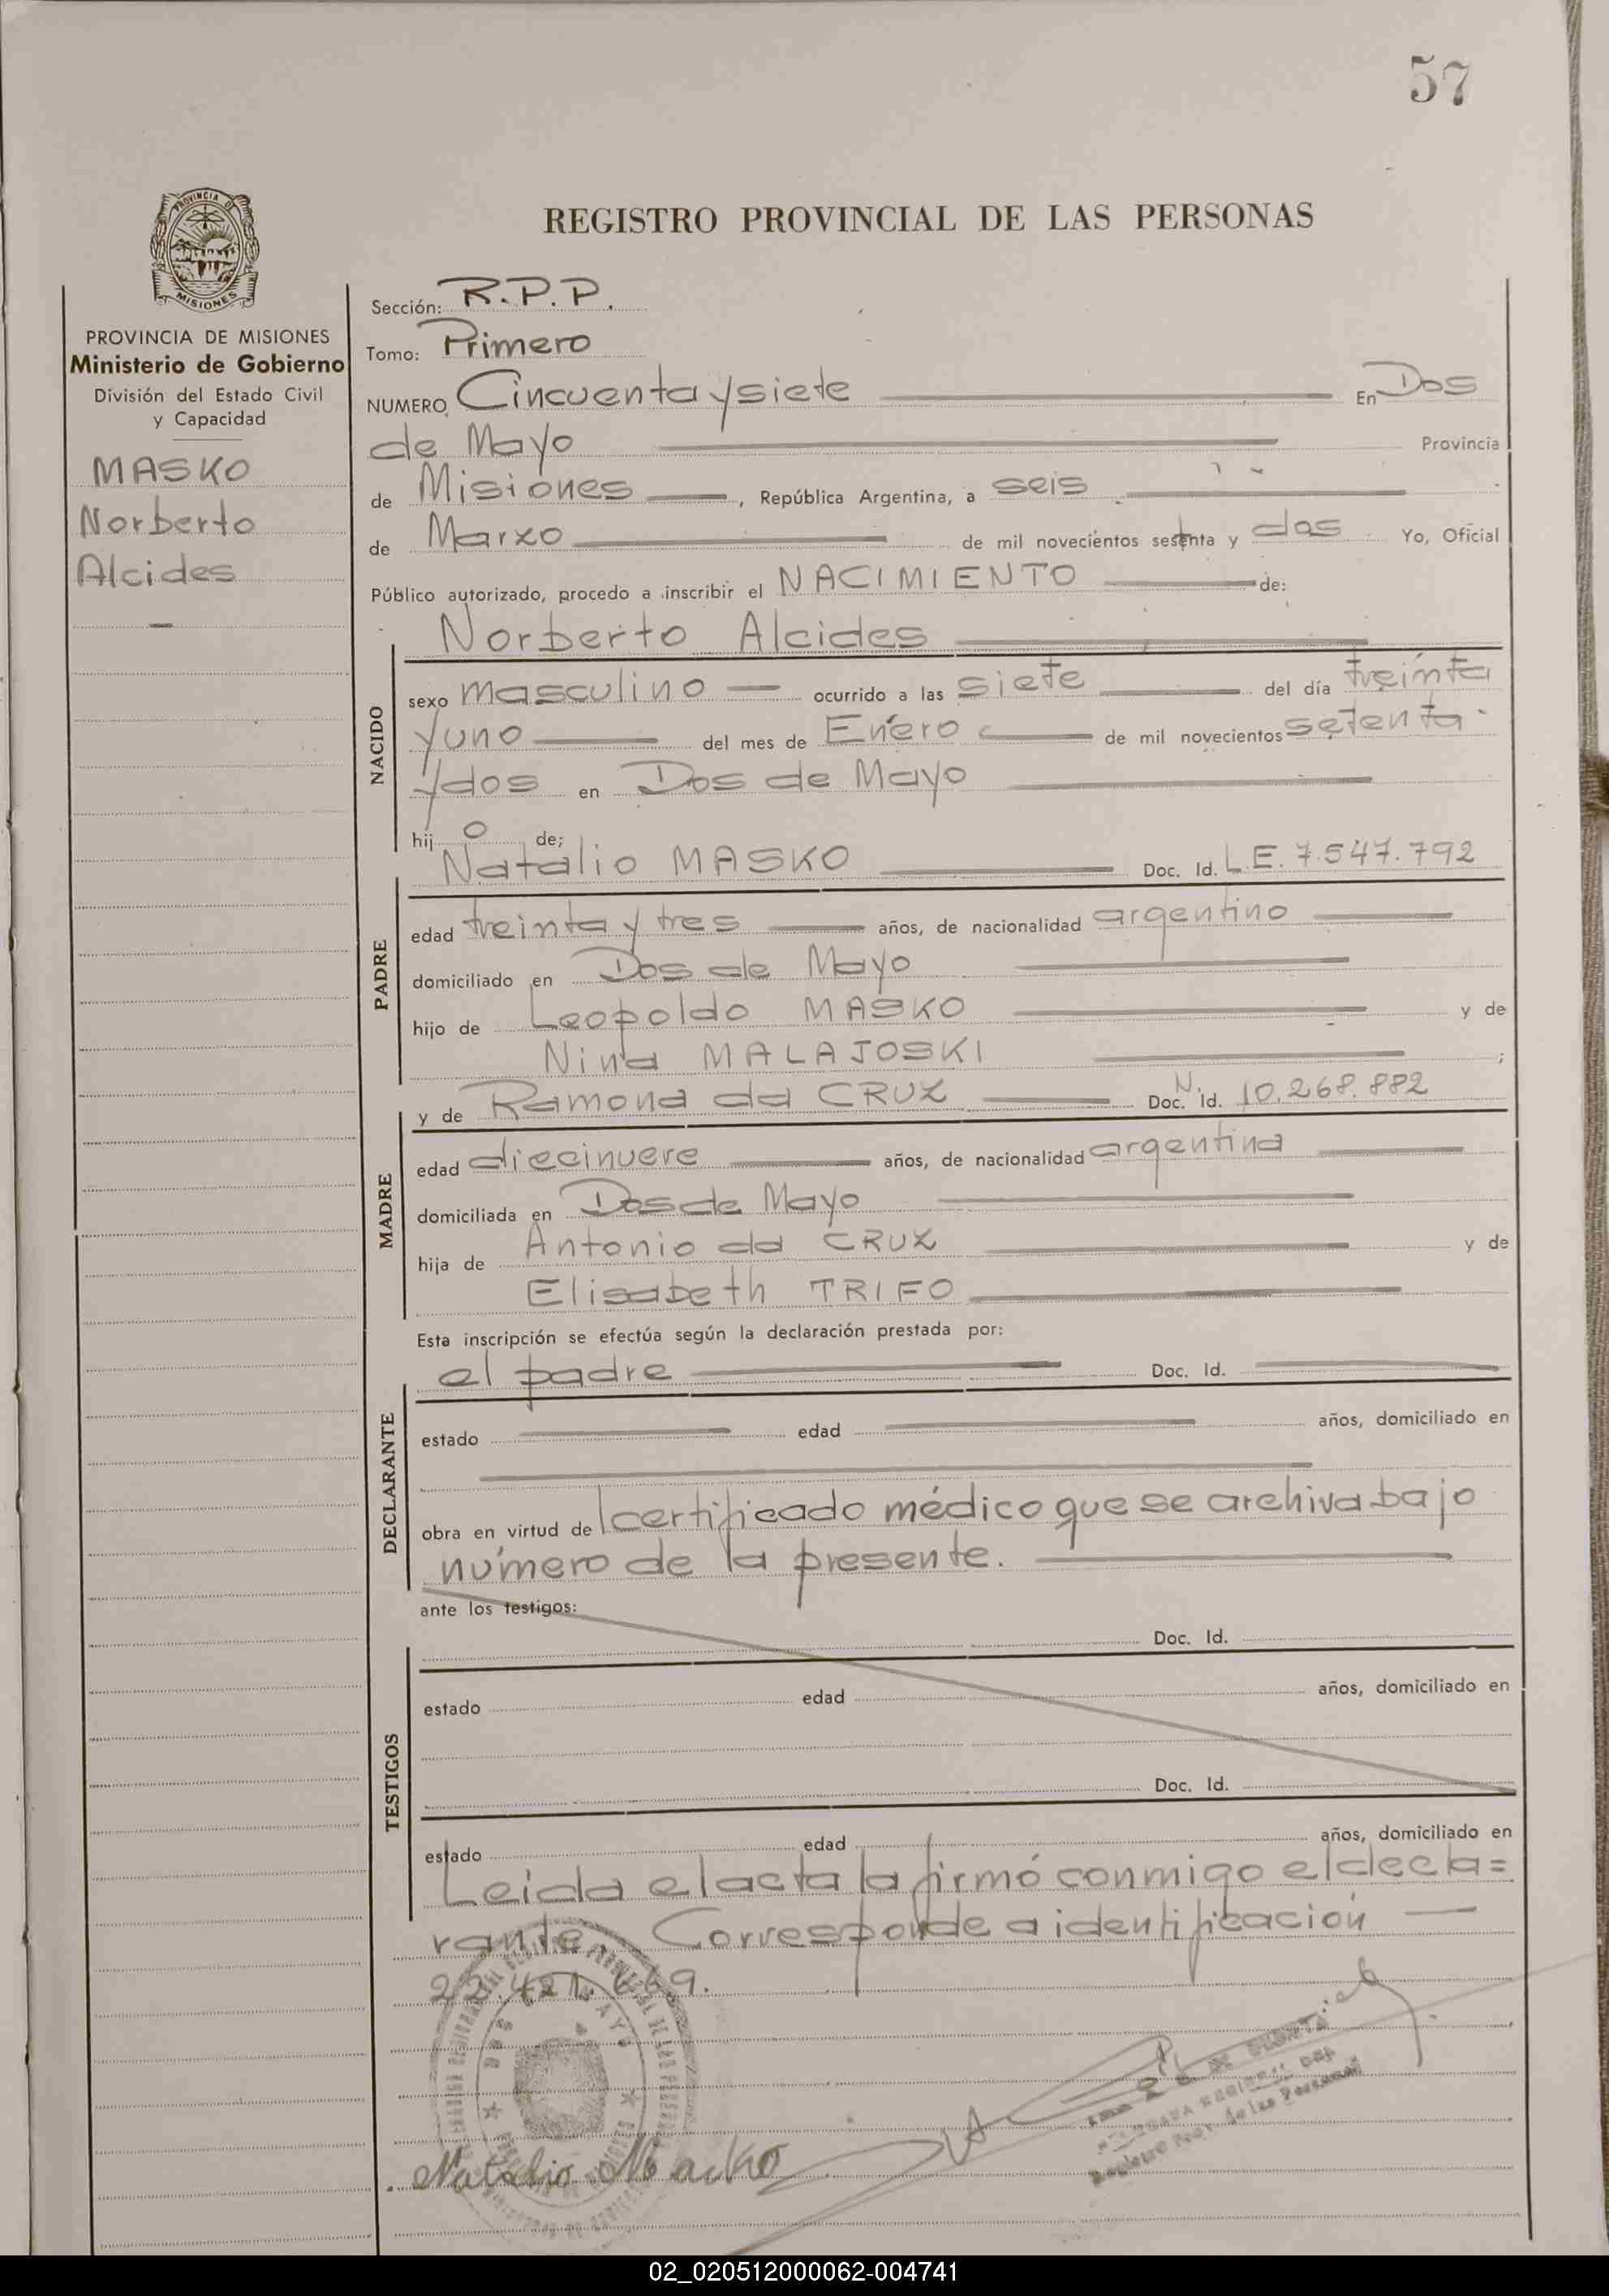 57
PROVINCIA DE
MISIONES
REGISTRO PROVINCIAL DE LAS PERSONAS
PROVINCIA DE MISIONES
Ministerio de Gobierno
División del Estado Civil
y Capacidad
MASKO
Norberto
Alcides
Sección: R.P.P.
Tomo: Primero
NUMERO Cincuenta y siete En Dos
de Mayo Provincia
de Misiones, República Argentina, a seis
de Marzo de mil novecientos setenta y dos Yo, Oficial
Público autorizado, procedo a inscribir el NACIMIENTO de:
Norberto Alcides
NACIDO
sexo masculino ocurrido a las siete del día treinta
y uno del mes de Enero de mil novecientos setenta
y dos en Dos de Mayo
hij o de;
Natalio MASKO Doc. Id. L.E. 7.547.792
PADRE
edad treinta y tres años, de nacionalidad argentino
domiciliado en Dos de Mayo
hijo de Leopoldo MASKO y de
Nina MALAJOSKI ;
y de Ramona da CRUZ Doc. N. Id. 10.268.882
MADRE
edad diecinueve años, de nacionalidad argentina
domiciliada en Dos de Mayo
hija de Antonio da CRUZ y de
Elisabeth TRIFO
Esta inscripción se efectúa según la declaración prestada por:
el padre Doc. Id.
DECLARANTE
estado edad años, domiciliado en
obra en virtud de certificado médico que se archiva bajo
número de la presente.
ante los testigos:
Doc. Id.
TESTIGOS
estado edad años, domiciliado en
Doc. Id.
estado edad años, domiciliado en
Leida el acta la firmó conmigo el decla=
rante. Corresponde a identificación
Natalio Masko
02_020512000062-004741